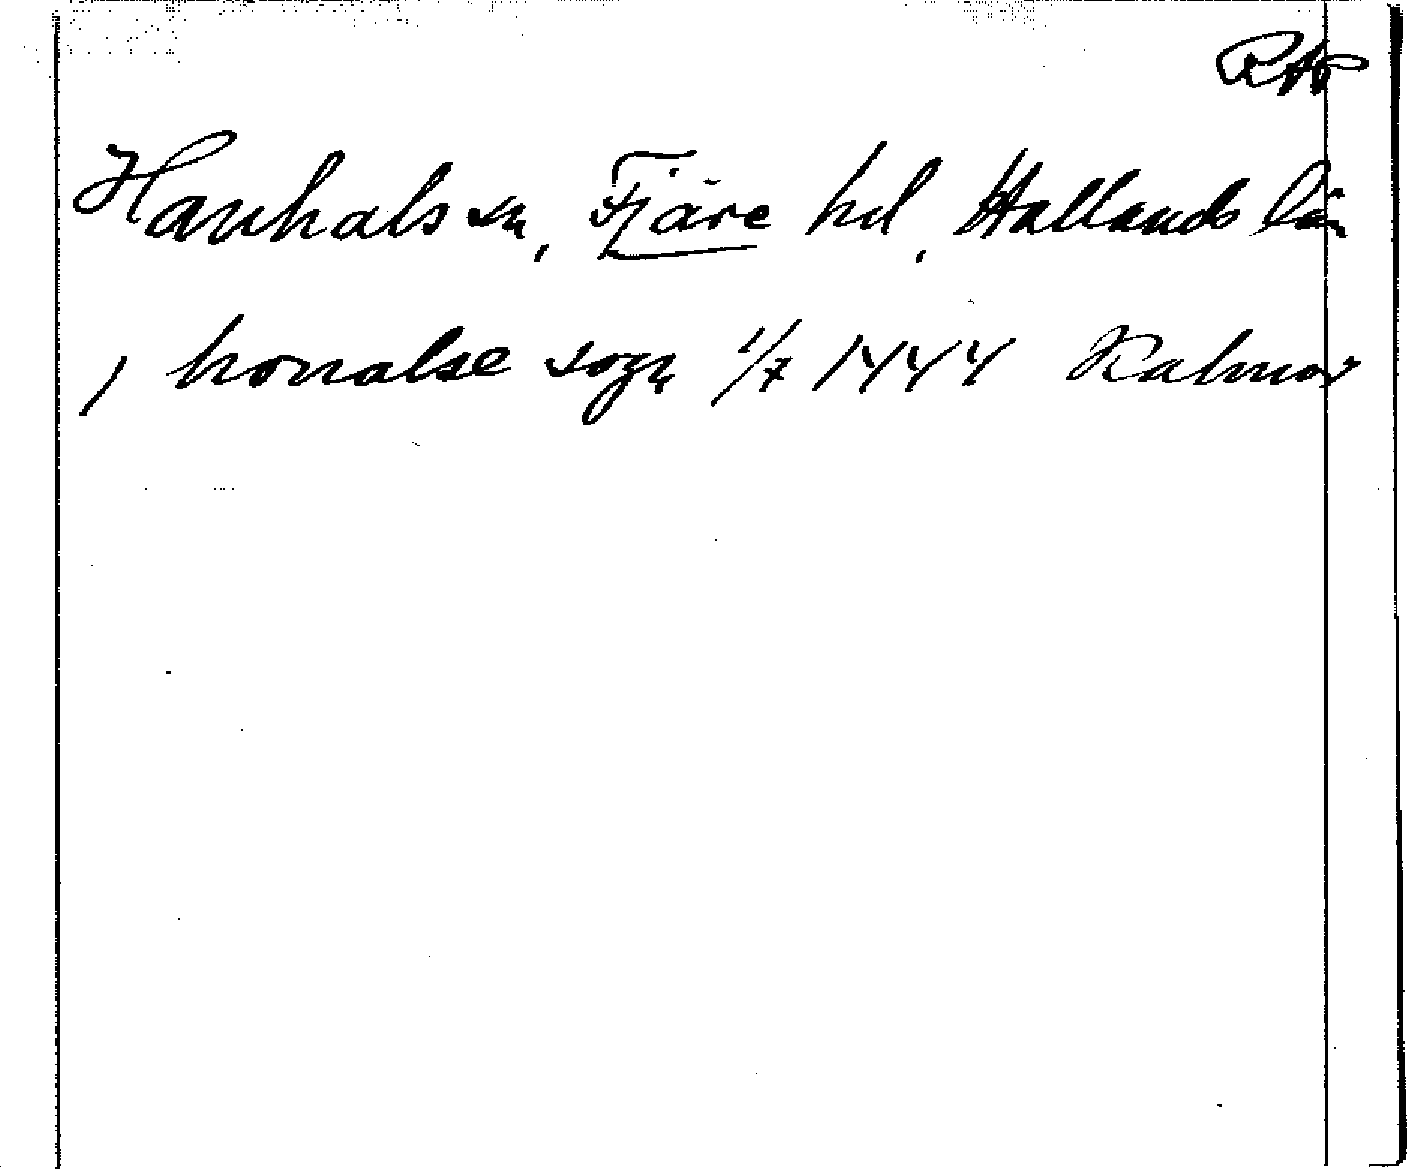 RAP
Hanhals sn, Fjäre hd, Hallands län
, honalse sogn 1/7 1444 Kalmar